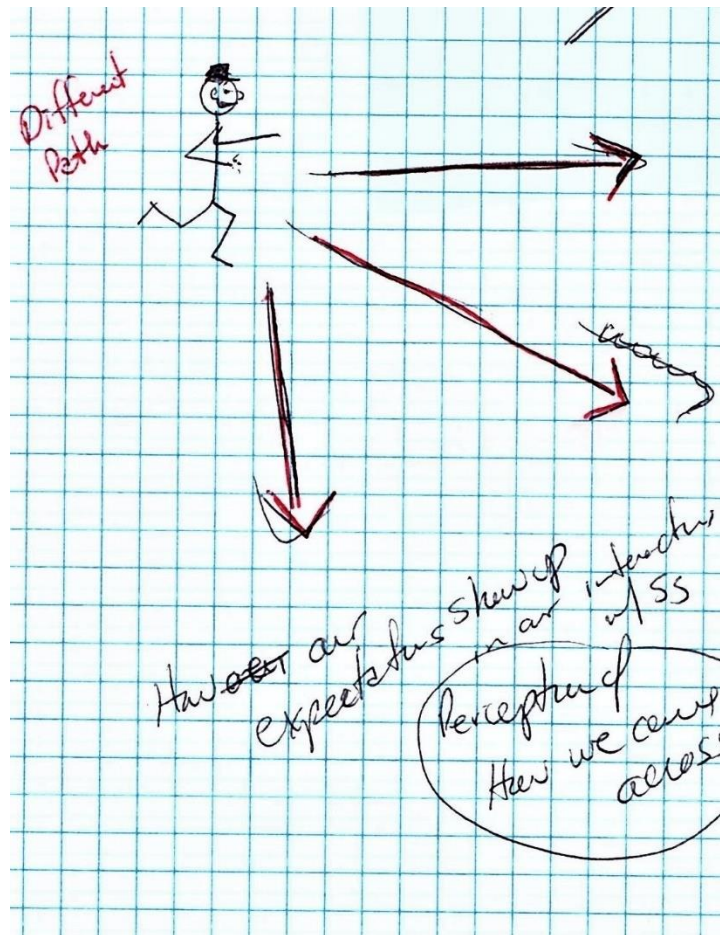 Different
Path
How our
expectations show up
in our interactions
w/ SS
Perception of
How we come
across